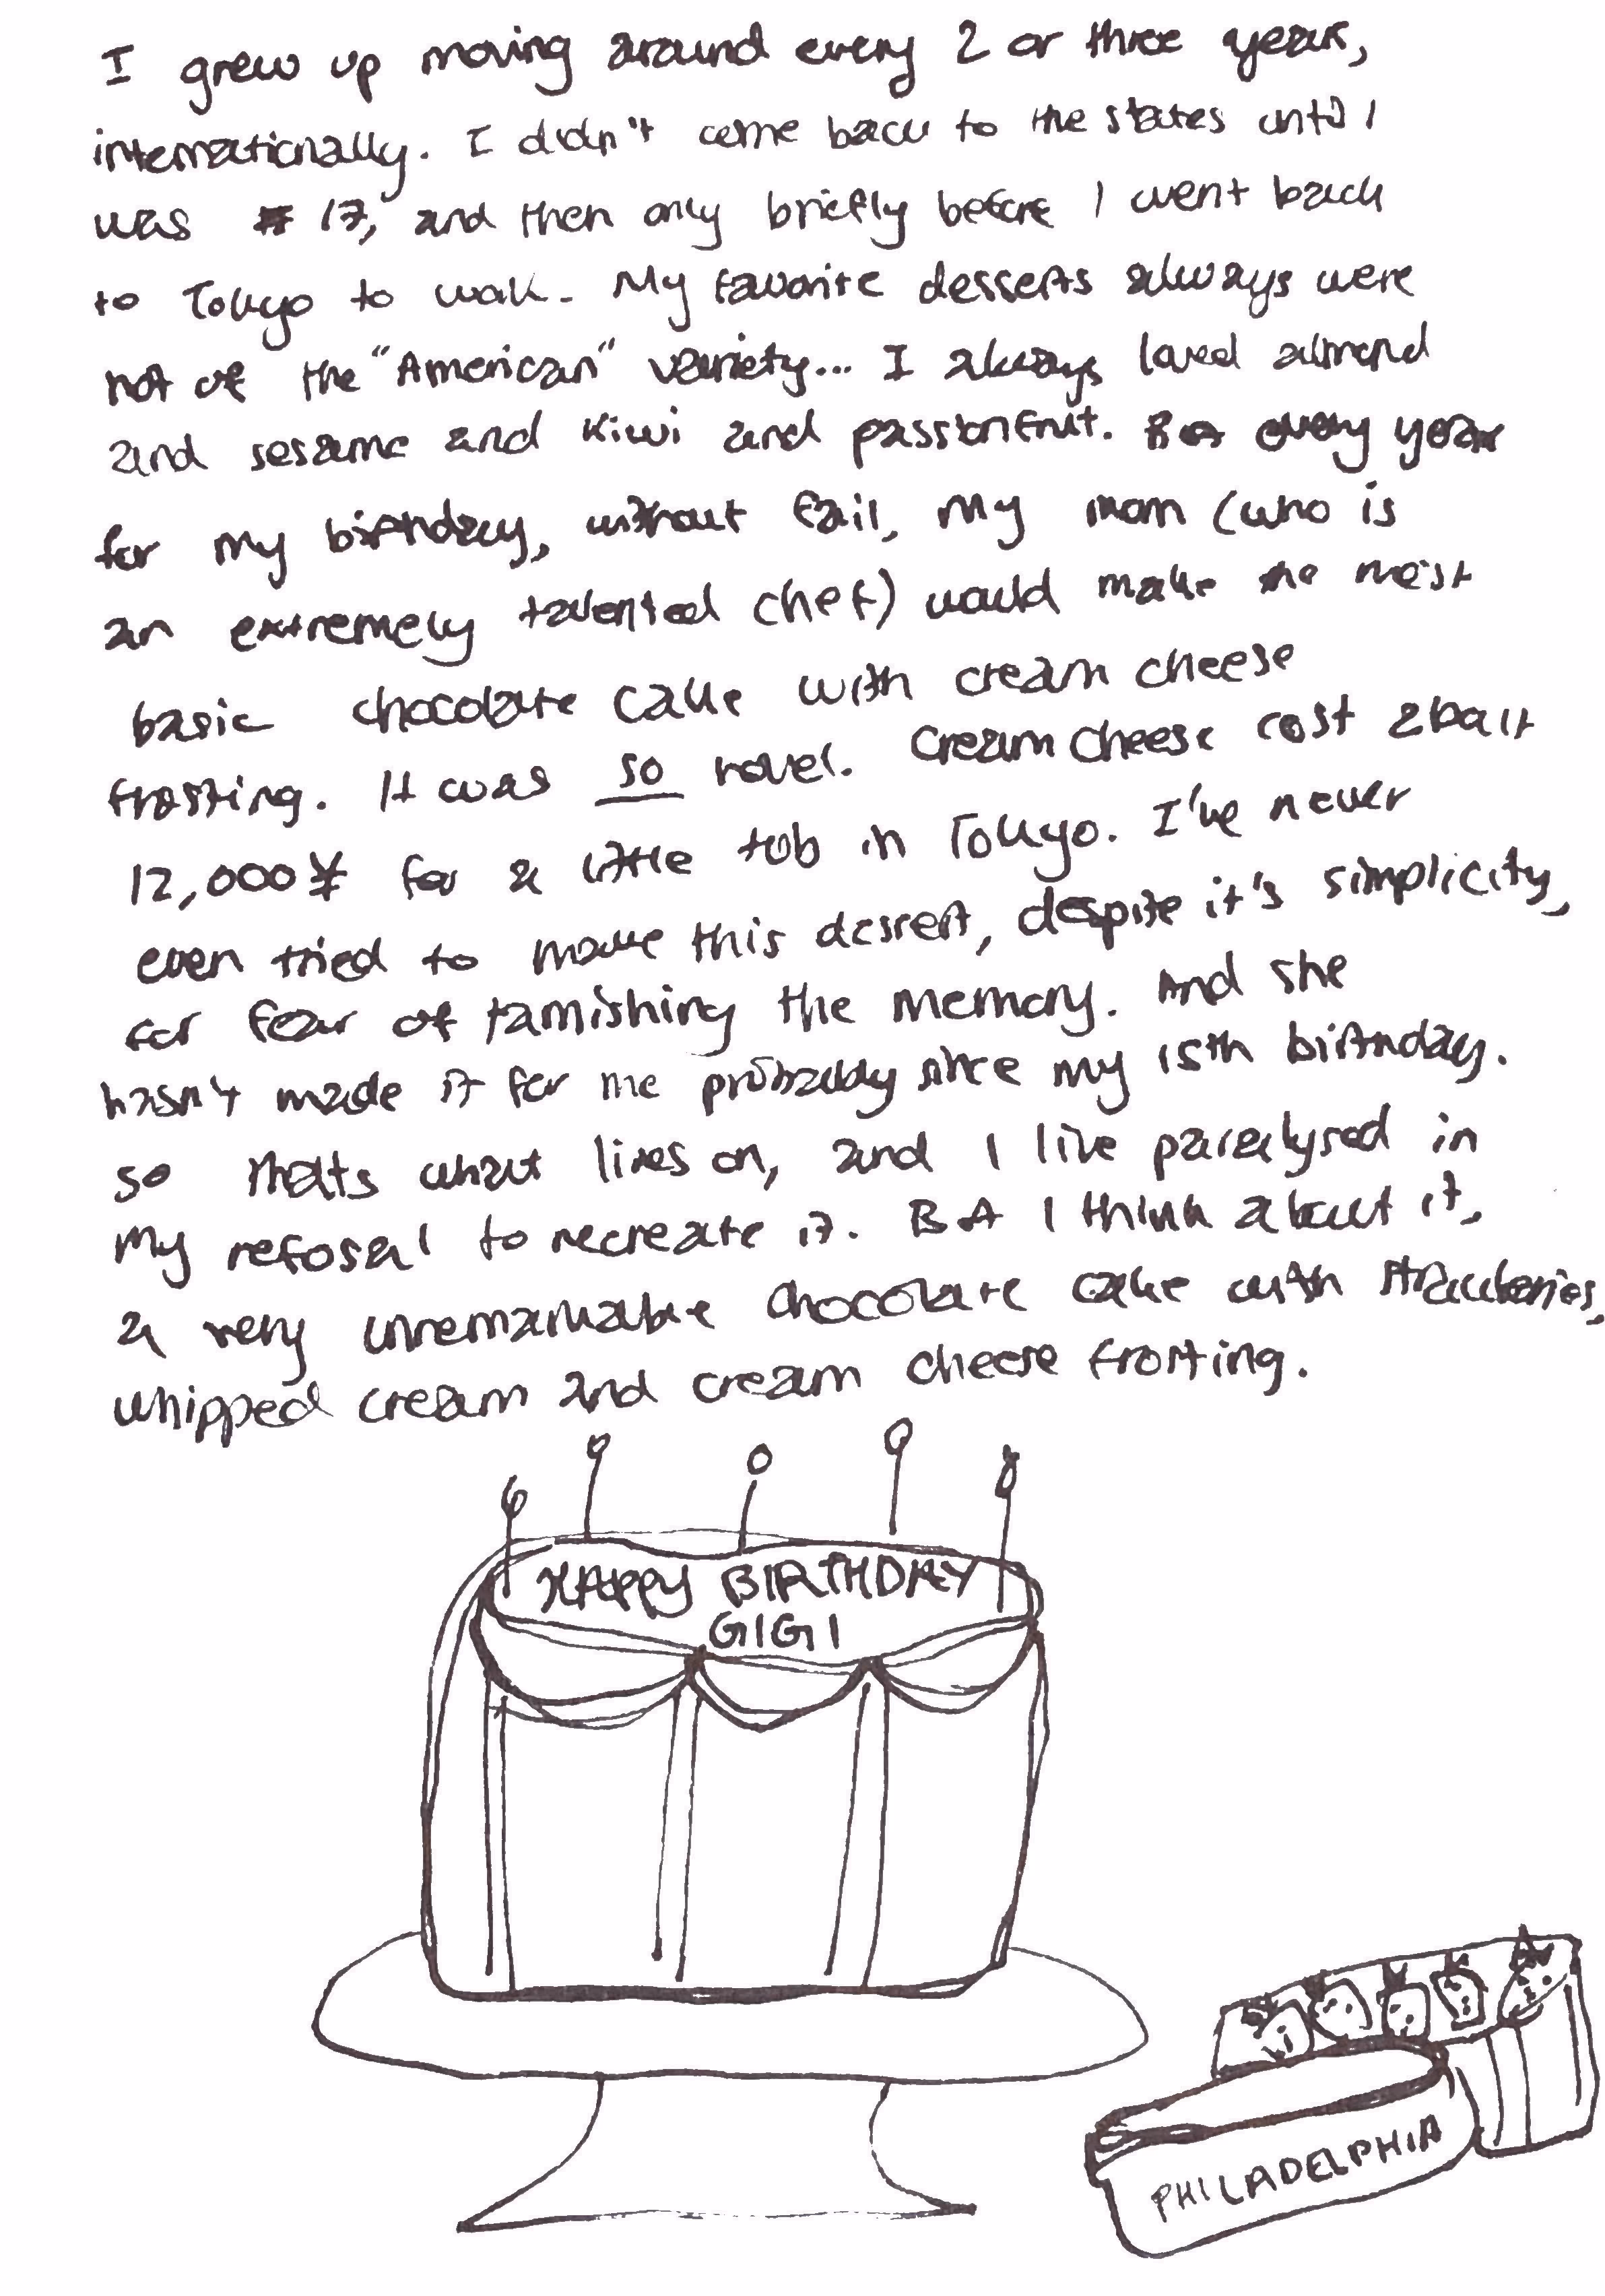 I grew up moving around every 2 or three years,
internationally. I didn't come back to the states until I
was 17, and then only briefly before I went back
to Tokyo to work. My favorite desserts always were
not of the "American" variety... I always loved almond
and sesame and kiwi and passionfruit. But every year
for my birthday, without fail, my mom (who is
an extremely talented chef) would make the most
basic chocolate cake with cream cheese
frosting. It was so novel. Cream cheese cost about
12,000¥ for a little tub in Tokyo. I've never
even tried to make this desert, despite it's simplicity,
for fear of tarnishing the memory. And she
hasn't made it for me probably since my 15th birthday.
so thats what lives on, and I live paralysed in
my refusal to recreate it. But I think about it,
a very unremarkable chocolate cake with strawberries,
whipped cream and cream cheese frosting.
HAPPY BIRTHDAY
GIGI
PHILADELPHIA